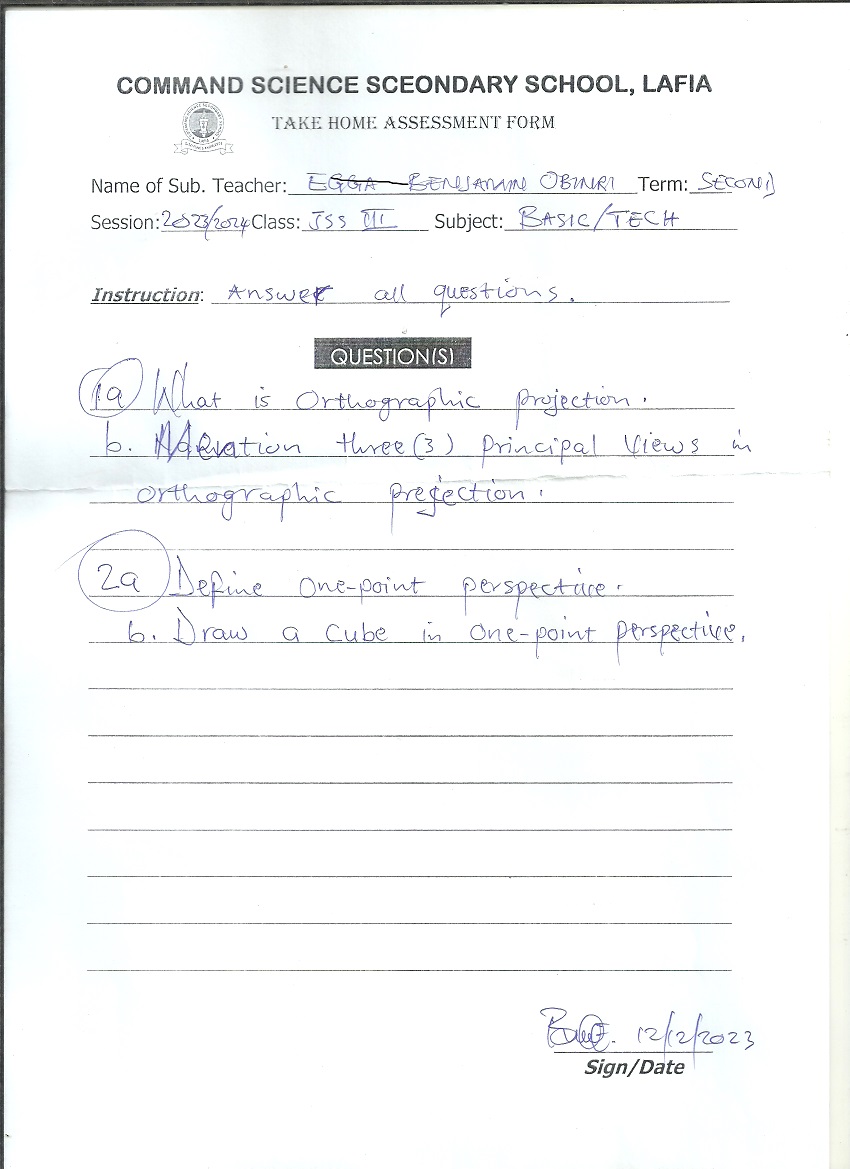 COMMAND SCIENCE SCEONDARY SCHOOL, LAFIA
TAKE HOME ASSESSMENT FORM
Name of Sub. Teacher: EGGA BENJAMIN OBINRI Term: SECOND
Session: 2023/2024 Class: JSS III Subject: BASIC/TECH
Instruction: Answer all questions.
QUESTION(S)
1a What is Orthographic projection.
b. three (3) Principal Views in
orthographic projection.
2a Define One-point perspective.
b. Draw a Cube in One-point perspective.
12/12/2023
Sign/Date